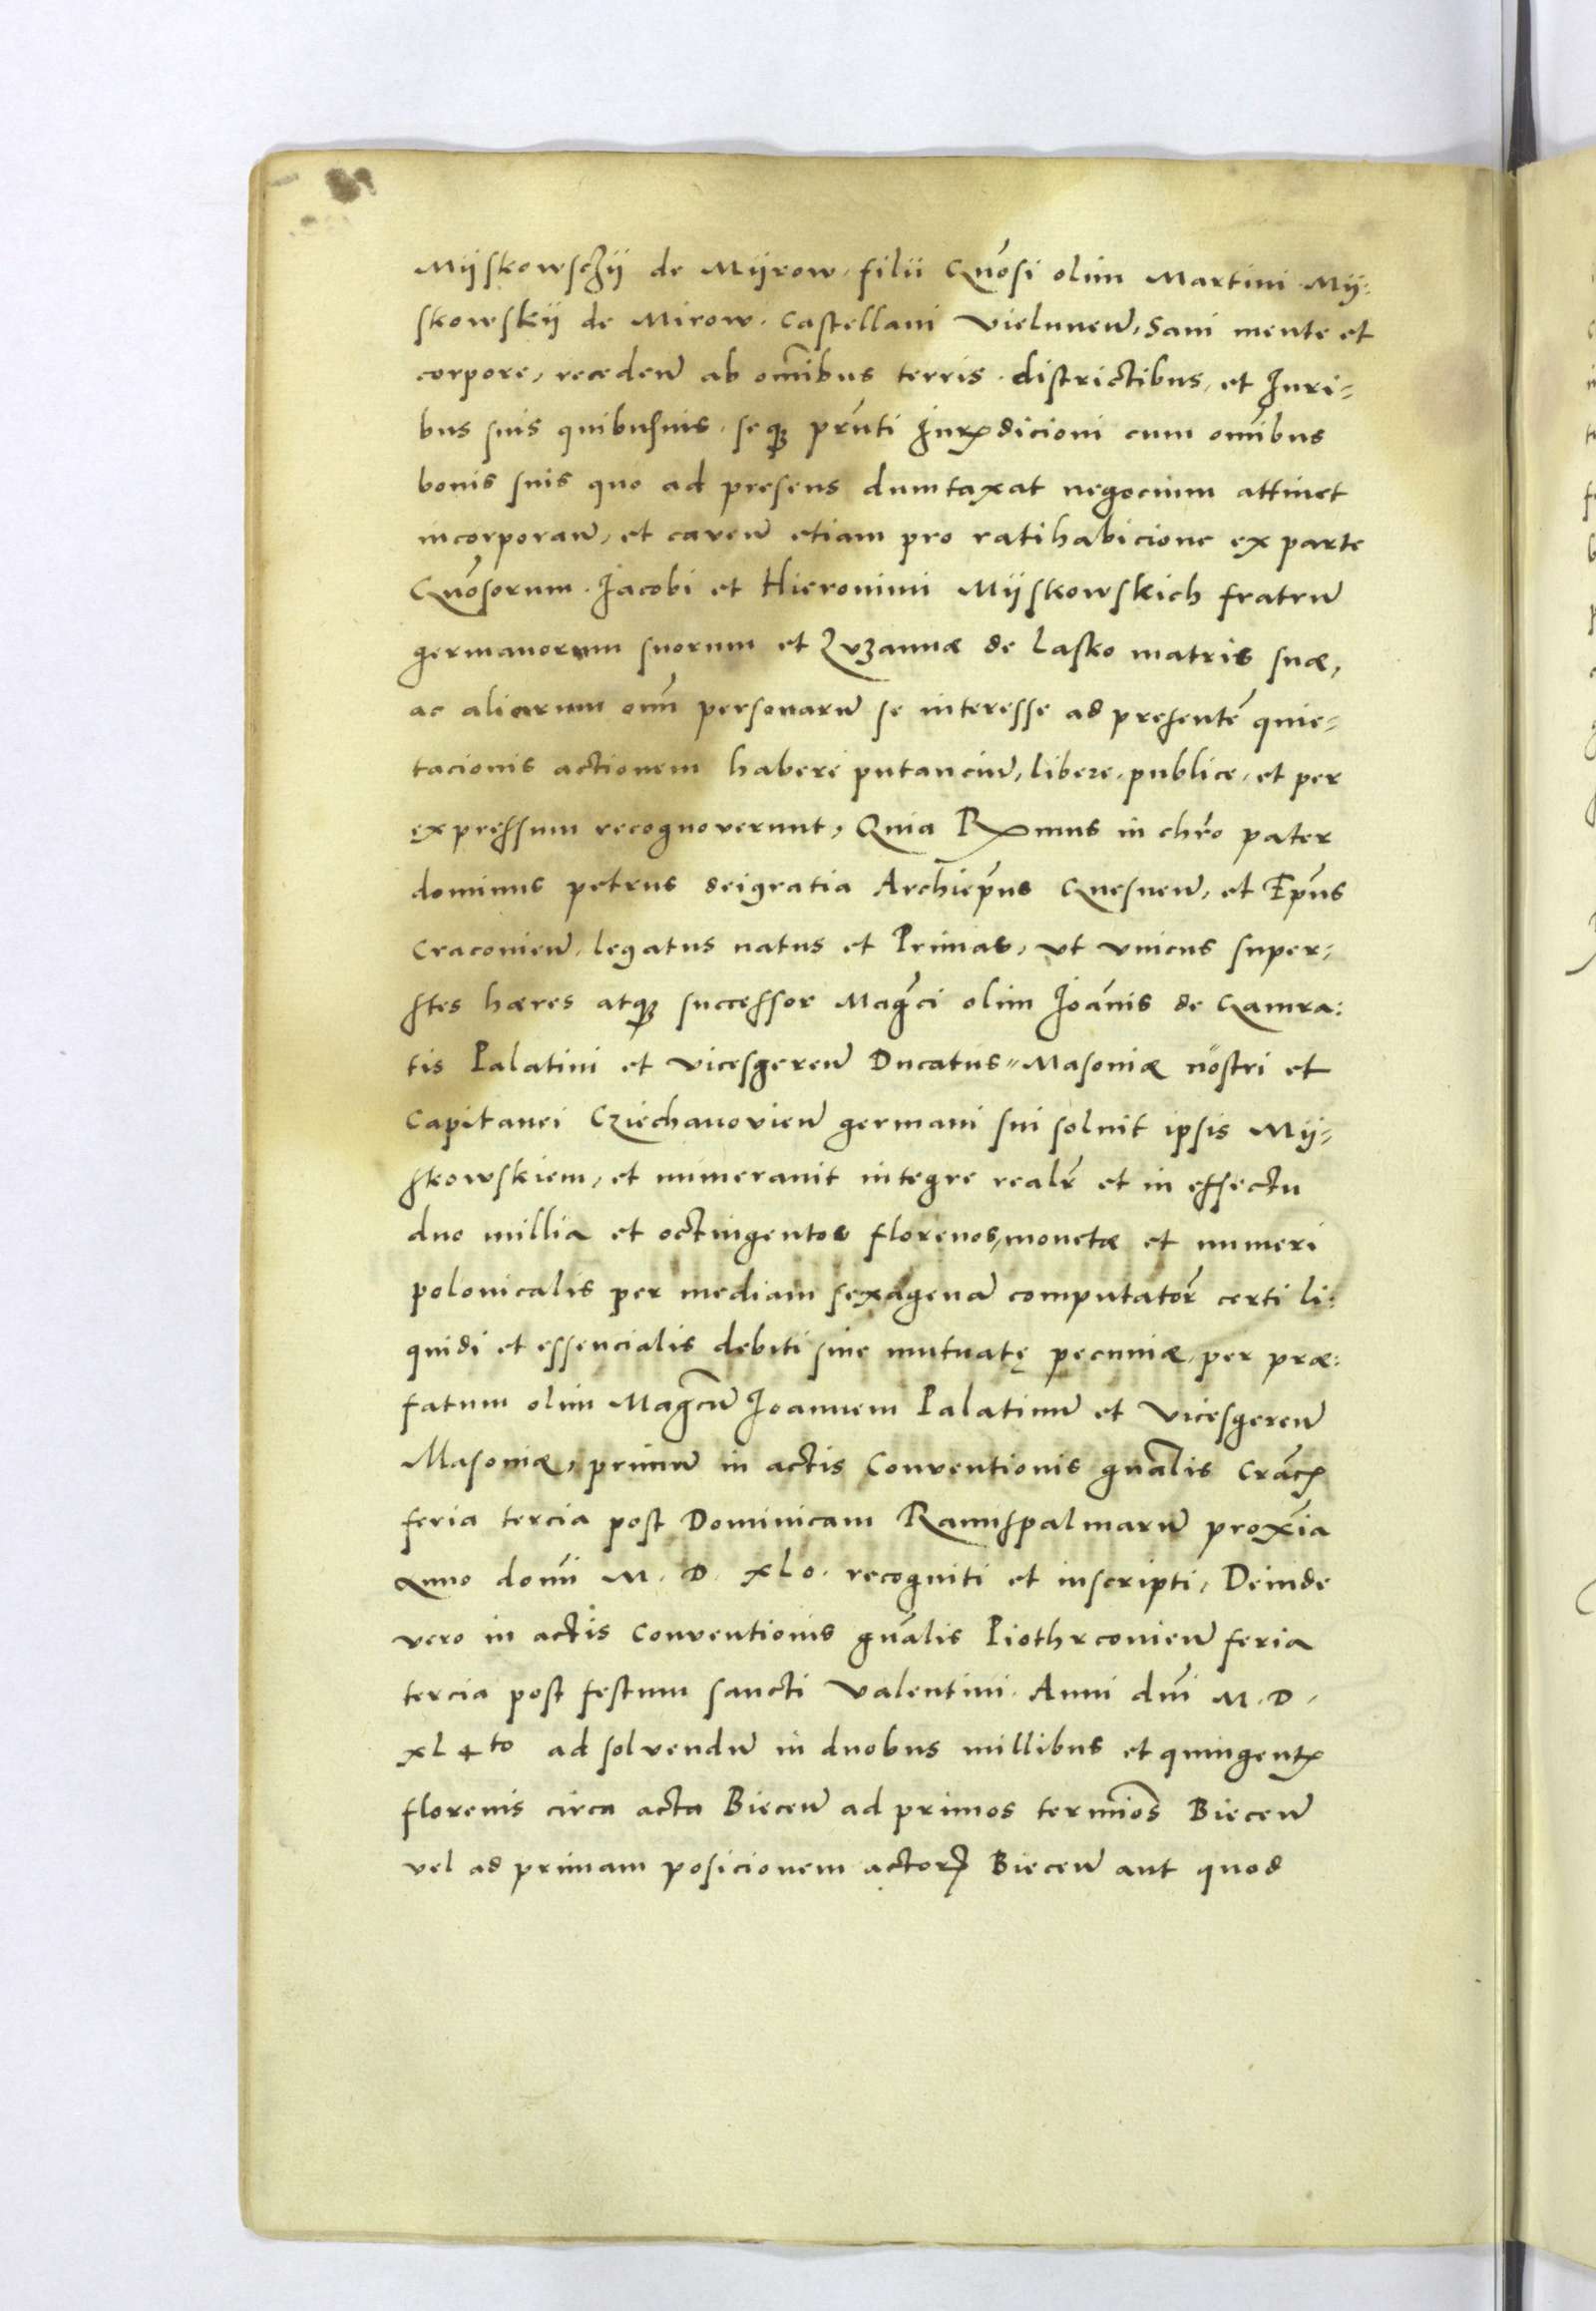 Mÿskowsczÿ de Mÿrow. filii Gn̄osi olim Martini Mÿ:
skowskÿ de Mirow. Castellani Vielunen̄, Sani mente et
corpore, recedeñ ab om̄ibus terris. districtibus, et Iuri=
bus suis quibusuis. seqꝫ pn̄ti Iurꝭdicioni cum om̄ibus
bonis suis quo ad presens dumtaxat negocium attinet
incorporañ, et caveñ etiam pro ratihabicione ex parte
Gn̄osorum. Iacobi et Hieronimi Mÿskowskich fratrū
germanorum suorum et Zvzannæ de Lasko matris suæ,
ac aliarum om̄ personarū se interesse ad presentē quie=
tacionis actionem habere putanciū, libere, publice, et per
expressum recognoverunt, Quia Rx̄mus in chr̄o pater
dominus petrus deigratia Archiep̄us Gnesneñ, et Ep̄us
Cracovieñ. legatus natus et Primas, vt vnicus super=
stes hæres atqꝫ successor Mag̃ci olim Ioãnis de Gamra:
tis Palatini et vicesgereñ Ducatus Masoviæ nostri et
Capitanei Cziechanovieñ germani sui soluit ipsis Mÿ=
skowskiem, et numeravit integre realr̄ et in effectu
duo millia et octingentos florenos, monetæ et numeri
polonicalis per mediam sexagenā computator̄ certi li:
quidi et essencialis debiti siue mutuatę pecuniæ, per præ:
fatum olim Mag̃cū Ioannem Palatinū et Vicesgereñ
Masoviæ, primū in actis Conventionis gn̄alis Crac̄ꝭ
feria tercia post Dominicam Ramispalmarū proxīa
Anno domī M. D. XLo. recogniti et inscripti, Deinde
vero in actis Conventionis gn̄alis Piothrcovieñ feria
tercia post festum sancti Valentini. Anni dn̄i M. D.
XL4to ad solvendū in duobus millibus et quingentꝭ
florenis circa acta Bieceñ ad primos termīos Bieceñ
vel ad primam posicionem actorꝝ Bieceñ aut quod